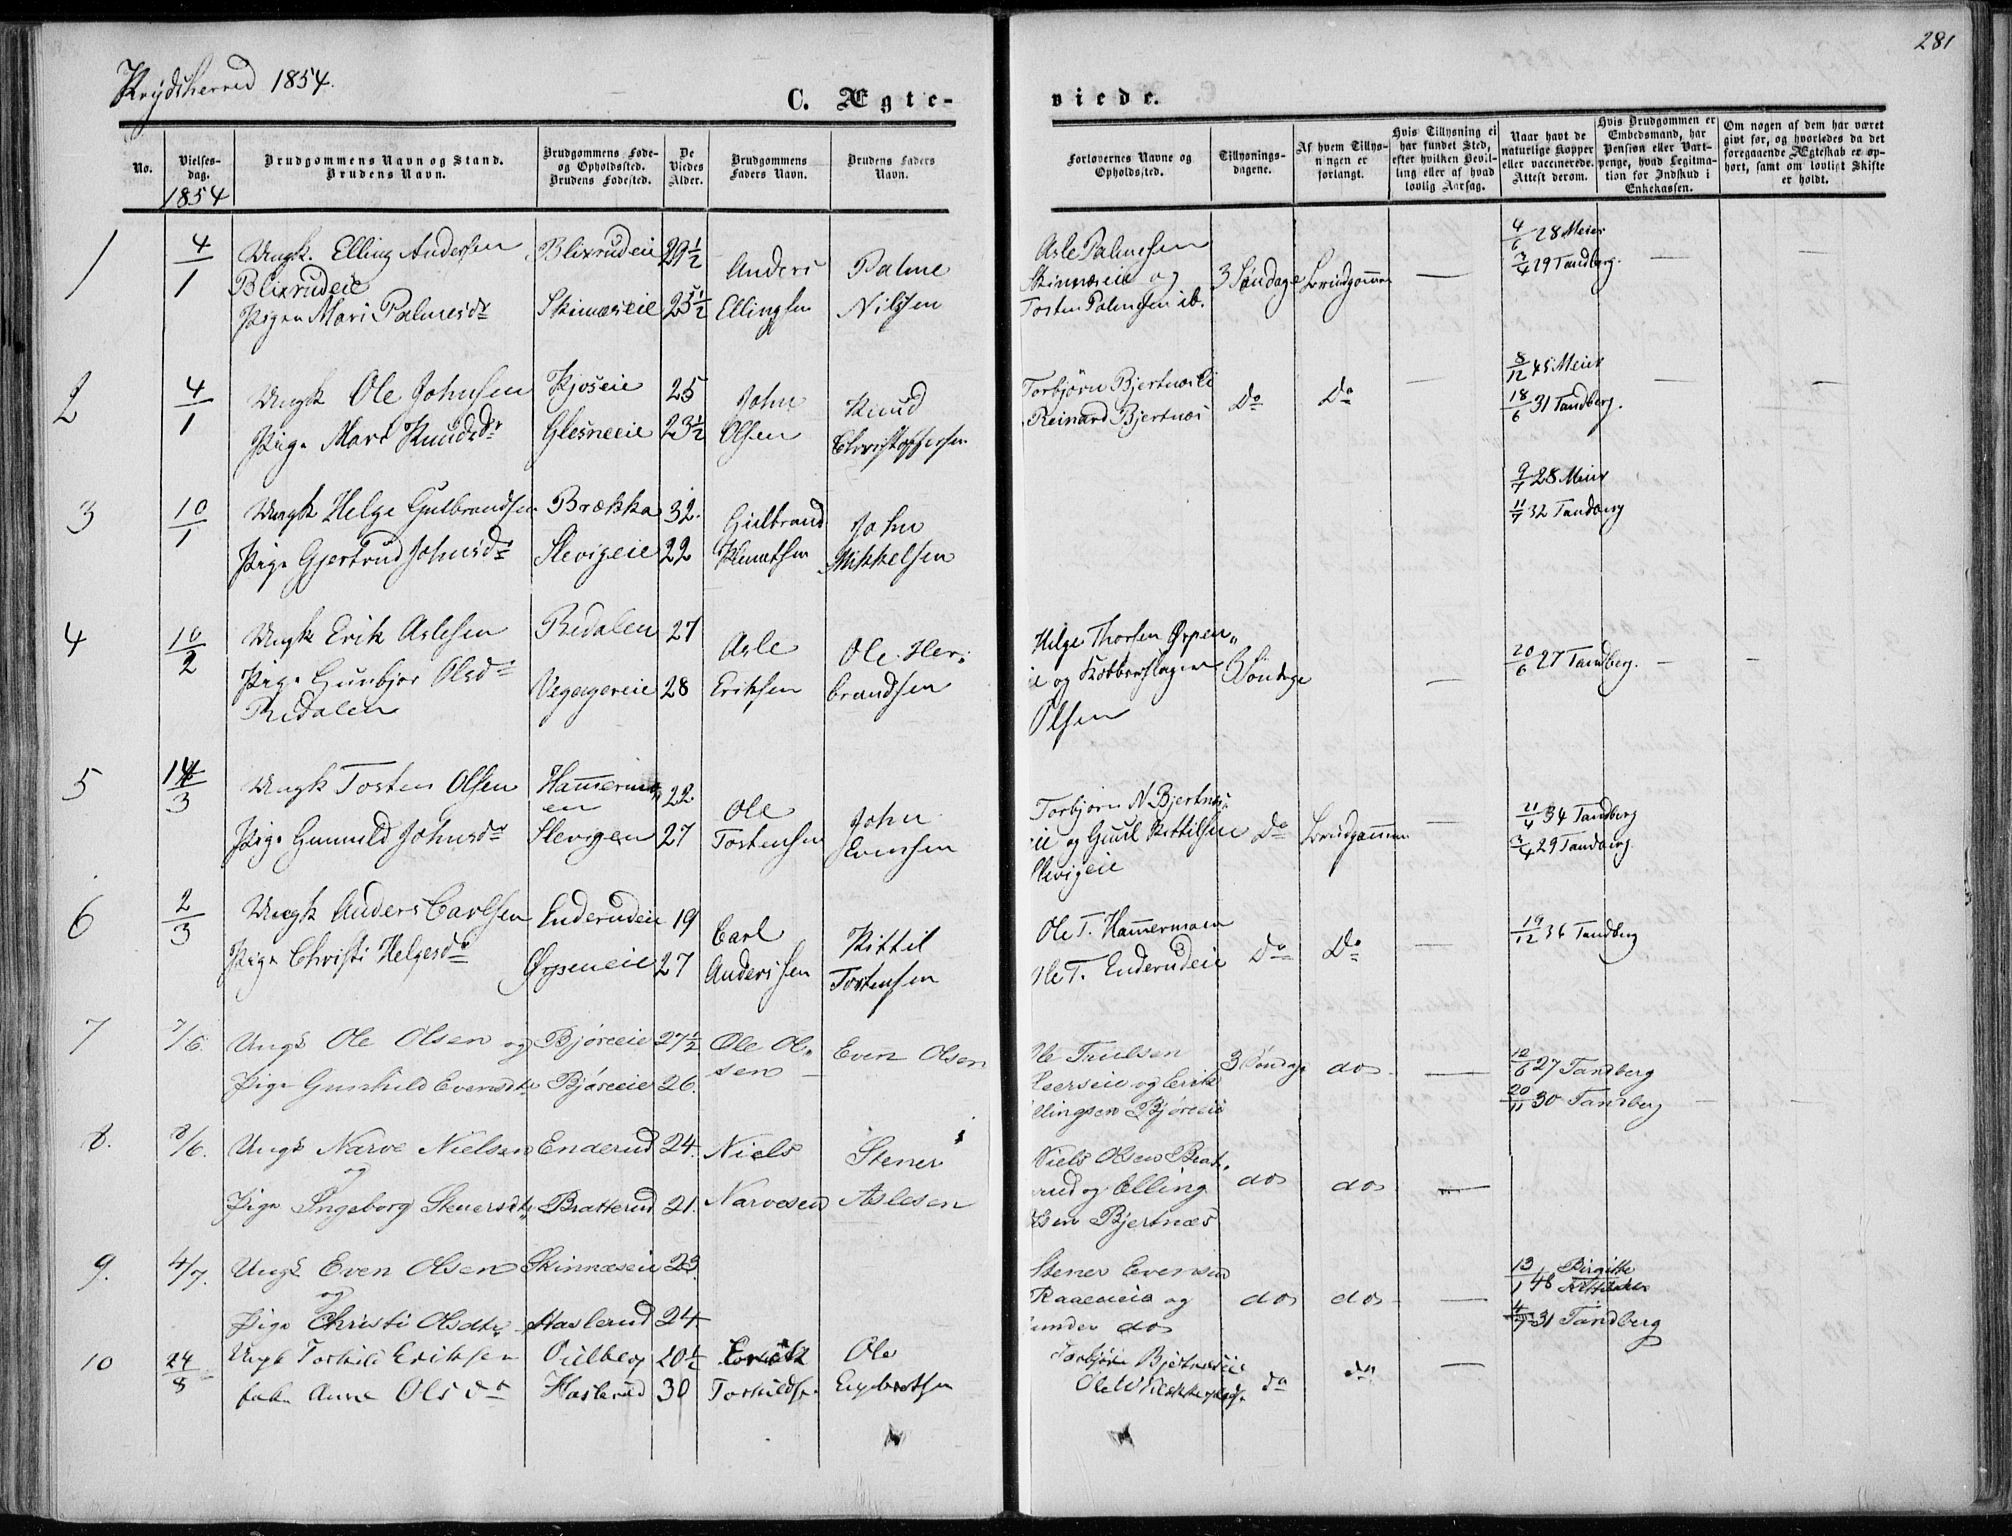 281
Krydsherred 1854.
C. Ægte-
viede.
No.
Vielses-
dag.
1854
Brudgommens Navn og Stand.
Brudens Navn.
Brudgommens Føde-
og Opholdssted.
Brudens Fødested.
De
Viedes
Alder.
Brudgommens
Faders Navn.
Brudens Faders
Navn.
Forlovernes Navne og
Opholdssted.
Tillysnings-
dagene.
Af hvem Tillys-
ningen er
forlangt.
Hvis Tillysning ei
har fundet Sted,
efter hvilken Bevil-
ling eller af hvad
lovlig Aarsag.
Naar havt de
naturlige Kopper
eller vaccinerede.
Attest derom.
Hvis Brudgommen er
Embedsmand, har
Pension eller Vart-
penge, hvad Legitima-
tion for Indskud i
Enkekassen.
Om nogen af dem har været
gift før, og hvorledes da det
foregaaende Ægteskab er op-
hørt, samt om lovligt Skifte
er holdt.
1 4/1 Ungk. Elling Andersen Blixrudeie 29½
Blixrudeie
Pigen Mari Palmesdr Skinnæseie 25½
Anders Ellingsen
Palme Nilsen
Asle Palmesen
Skinnæseie og
Tosten Palmesen ib.
3 Søndage Brudgommen —
4/6 28 Meier
3/4 29 Tandberg. — —
2 4/1 Ungk Ole Johnsen Kjøseie 25
Pige Mari Knudsdr Glesneeie 23½
John Olsen
Knud Christoffersen
Torbjørn Bjertnæsei
Reinard Bjertnæs
Do Do —
8/12 45 Meier
18/6 31 Tandberg. — —
3 10/1 Ungk Helge Gulbrandsen Brækka 32.
Pige Gjertrud Johnsdr Slevigeie 22
Gulbrand Knutsen
John Mikkelsen
9/7 28 Meier
11/7 32 Tandberg
4 10/2 Ungk Erik Aslesen Redalen 27
Pige Gunbjør Olsdr Vegegereie 28
Redalen
Asle Eriksen
Ole Her-
brandsen
Helge Thorsen Ørpen-
ie og Kobberslager
Olsen
3 Søndage —
20/6 27 Tandberg. — —
5 14/3 Ungk Tosten Olsen Hammerm
en 22
Pige Gunnild Johnsdr Slevigen 27
Ole Tostensen
John Evensen
Torbjørn N. Bjertnæs-
eie og Gul Kittilsen
Slevigeie
Do Brudgommen —
21/4 34 Tandberg
3/4 29 Tandberg.
6 2/3 Ungk Anders Carlsen Enderudeie 19
Pige Christi Helgesdr Ørpeneie 27
Carl Anderssen
Kittil Tostensen
Ole T. Hammermoen
Ole T. Enderudeie
Do Do —
19/12 36 Tandberg
7 7/6. Ungk Ole Olsen og Bjøreeie 27½
Pige Gunhild Evensdtr Bjøreeie 26.
Ole Ol-
sen —
Even Olsen
Ole Truelsen
og Erik
Ellingsen Bjøreeie
3 Søndage do —
12/6 27 Tandberg
20/11 30 Tandberg — —
8. 8/6. Ungk Narve Nielsen Enderud 24.
og
Pige Ingeborg Stenersdtr Bratterud 21.
Niels Narvesen
Stener Aslesen
Niels Olsen Brat-
rud og Elling
Olsen Bjertnæs
do do —
9. 4/7. Ungk Even Olsen Skinnæseie 23.
og
Pige Christi Olsdtr Haslerud 24
Stener Evensen
Raaeneie og
Gunder do
do do —
13/1 48 Birgitte
4/7 31 Tandberg
10 24/8 Ungk Torkild Eriksen 20½
fak. Anne Olsdr Haslerud 30
Erik Torkildsn
Ole Engebretsen
Torbjørn Bjertnæseie
do do —